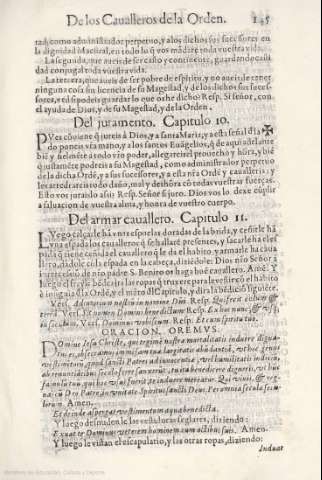 De los Caualleros de la Orden. 145
tad, como administrador perpetuo, y a los dichos sus sucessores en
la dignidad Maestral, en todo lo q̃ vos mãdarẽ toda vuestra vida.
La segunda, que aueis de ser casto y continente, guardando casti
dad conjugal toda vuestra vida.
La tercera, que aueis de ser pobre de espiritu, y no aueis de tener
ninguna cosa sin licencia de su Magestad, y de los dichos sus suces-
sores, podeis guardar lo que os he dicho? Resp. Si señor, con
el ayuda de Dios, y de su Magestad, y de la Orden.
Del juramento. Capitulo 10.
PVes cõuiene q̃ jureis à Dios, y a santa Maria, y a esta señal dla ✠
do poneis vra mano, y a los santos Euãgelios, q̃ de aqui adelante
biẽ y fielmẽte a todo vro poder, allegareis el prouecho y hõra, y biẽ
de su Magestad, como administrador perpetuo
de la dicha Ordẽ, y a sus sucessores, y a esta nra Ordẽ y caualleria: y
todo daño, mal y deshõra cõ todas vuestras fuerças.
Esto vos juraislo assi? Resp. Señor si juro. Dios vos lo dexe cũplir
a saluacion de vuestra alma, y honra de vuestro cuerpo.
Del armar cauallero. Capitulo 11.
LVego calçarle hã vnas espuelas doradas de la brida, y ceñirle hã
vna espada los caualleros q̃ se hallarẽ presentes, y sacarle hã el es-
pada q̃ tiene ceñida el cauallero q̃ le da el habito y armarle ha caua
llero, dãdole cõ la espada en la cabeça, diziẽdole: Dios nro Señor à
intercessiõ de nro padre S. Benito os haga buẽ cauallero. Amẽ. Y
luego el frayle
è insignia dla Ordẽ, y el dirà la bẽdiciõ siguiẽte.
Vers. Adiutorium nostrũ in nomine Dñi. Resp. Qui fecit cœlum &
terrã. Vers. Sit nomen Domini benedictum. Resp. Ex hoc nunc, & vsq;
in sæculum. Vers. Dominus vobiscum. Resp. Et cum spiritu tuo.
ORACION. OREMVS.
DOmine Iesu Christe, qui tegimẽ nostræ mortalitatis induere digna-
tus es, obsecramus immensam tuæ largitatis abũdantiã, vt hoc genus
vestimenti, quod sancti Patres ad innocentiæ, vel humilitatis indiciũ,
abrenuntiãtibus sæculo ferre sanxerũt, tu ita benedicere digneris, vt hic
famulus tuus, qui hoc vsus fuerit, te induere mereatur. Qui viuis, & reg-
nas cũ Deo Patre, in vnitate Spiritus sancti Deus. Per omnia sæcula sæcu-
lorum. Amen.
Et deinde aspergat vestimentum aqua benedicta.
Y luego desnuden le las vestiduras seglares, diziendo:
Exuat te Dominus veterem hominem cum actibus suis. Amen.
Y luego le vistan el escapulario, y las otras ropas, diziendo:
Induat
Ministerio de Educación, Cultura y Deporte